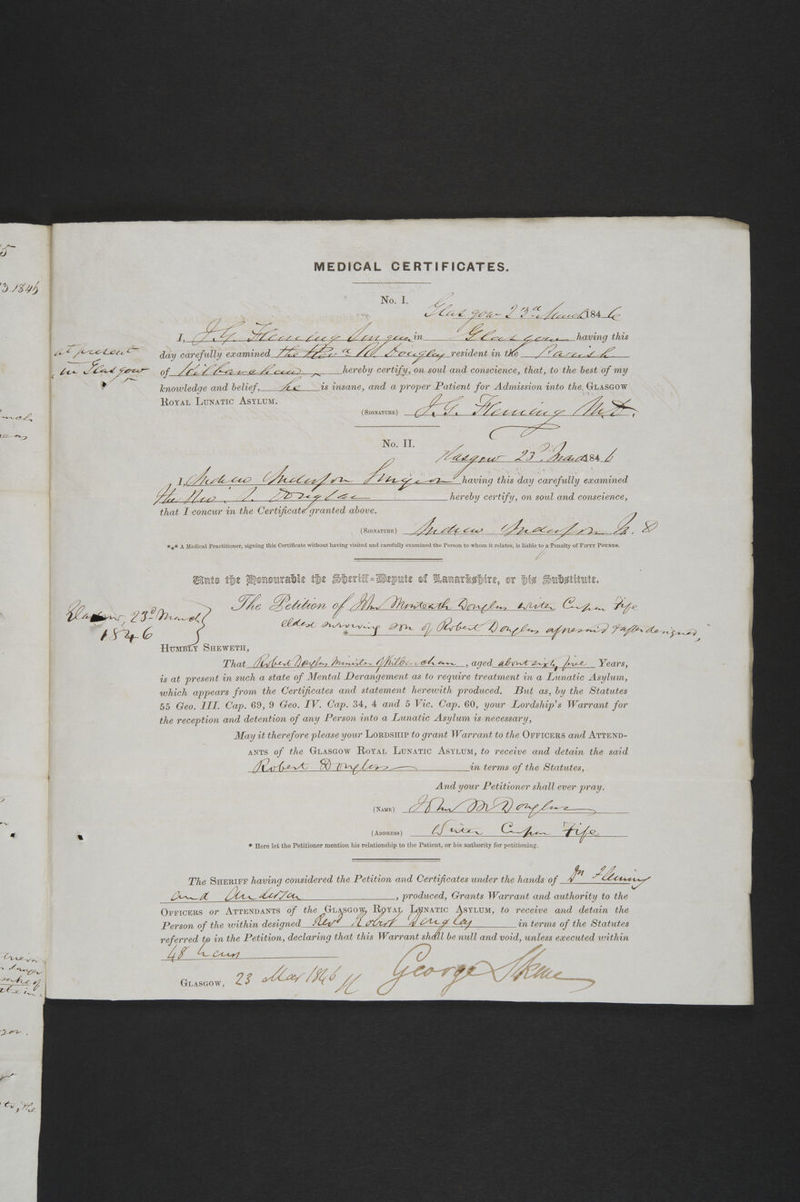 MEDICAL CERTIFICATES.
No. I.
Glasgow 23d March 1846
I, J. G. Fleming Surgeon in Glasgow having this
at present in Glasgow
day carefully examined The Revd R. Douglas resident in the Parish
of Kilbarchan hereby certify, on soul and conscience, that, to the best of my
knowledge and belief, he is insane, and a proper Patient for Admission into the GLASGOW
ROYAL LUNATIC ASYLUM.
(SIGNATURE) J. G. Fleming M.D.
No. II.
Glasgow 23d March 1846
I, Andrew Anderson Surgeon having this day carefully examined
The Rev. R. Douglas hereby certify, on soul and conscience,
that I concur in the Certificate granted above.
(SIGNATURE) Andrew Anderson M.D
*** A Medical Practitioner, signing this Certificate without having visited and carefully examined the Person to whom it relates, is liable to a Penalty of FIFTY POUNDS.
Unto the Honourable the Sheriff-Depute of Lanarkshire, or his Substitute.
Glasgow, 23d March 1846
The Petition of John Monteath Douglas writer Cupar Fife
eldest surviving son of Robert Douglas aforesaid & after designed,
HUMBLY SHEWETH,
That Robert Douglas Minister of Kilbarchan, aged about sixty five Years,
is at present in such a state of Mental Derangement as to require treatment in a Lunatic Asylum,
which appears from the Certificates and statement herewith produced. But as, by the Statutes
55 Geo. III. Cap. 69, 9 Geo. IV. Cap. 34, 4 and 5 Vic. Cap. 60, your Lordship's Warrant for
the reception and detention of any Person into a Lunatic Asylum is necessary,
May it therefore please your LORDSHIP to grant Warrant to the OFFICERS and ATTEND-
ANTS of the GLASGOW ROYAL LUNATIC ASYLUM, to receive and detain the said
Robert Douglas in terms of the Statutes,
And your Petitioner shall ever pray.
(NAME) John M Douglas
(ADDRESS) Writer Cupar Fife
* Here let the Petitioner mention his relationship to the Patient, or his authority for petitioning.
The SHERIFF having considered the Petition and Certificates under the hands of Drs Fleming
and Anderson, produced, Grants Warrant and authority to the
OFFICERS or ATTENDANTS of the GLASGOW ROYAL LUNATIC ASYLUM, to receive and detain the
Person of the within designed Revd Robert Douglas in terms of the Statutes
referred to in the Petition, declaring that this Warrant shall be null and void, unless executed within
48 hours
GLASGOW, 23 Mar 1846 George Skene